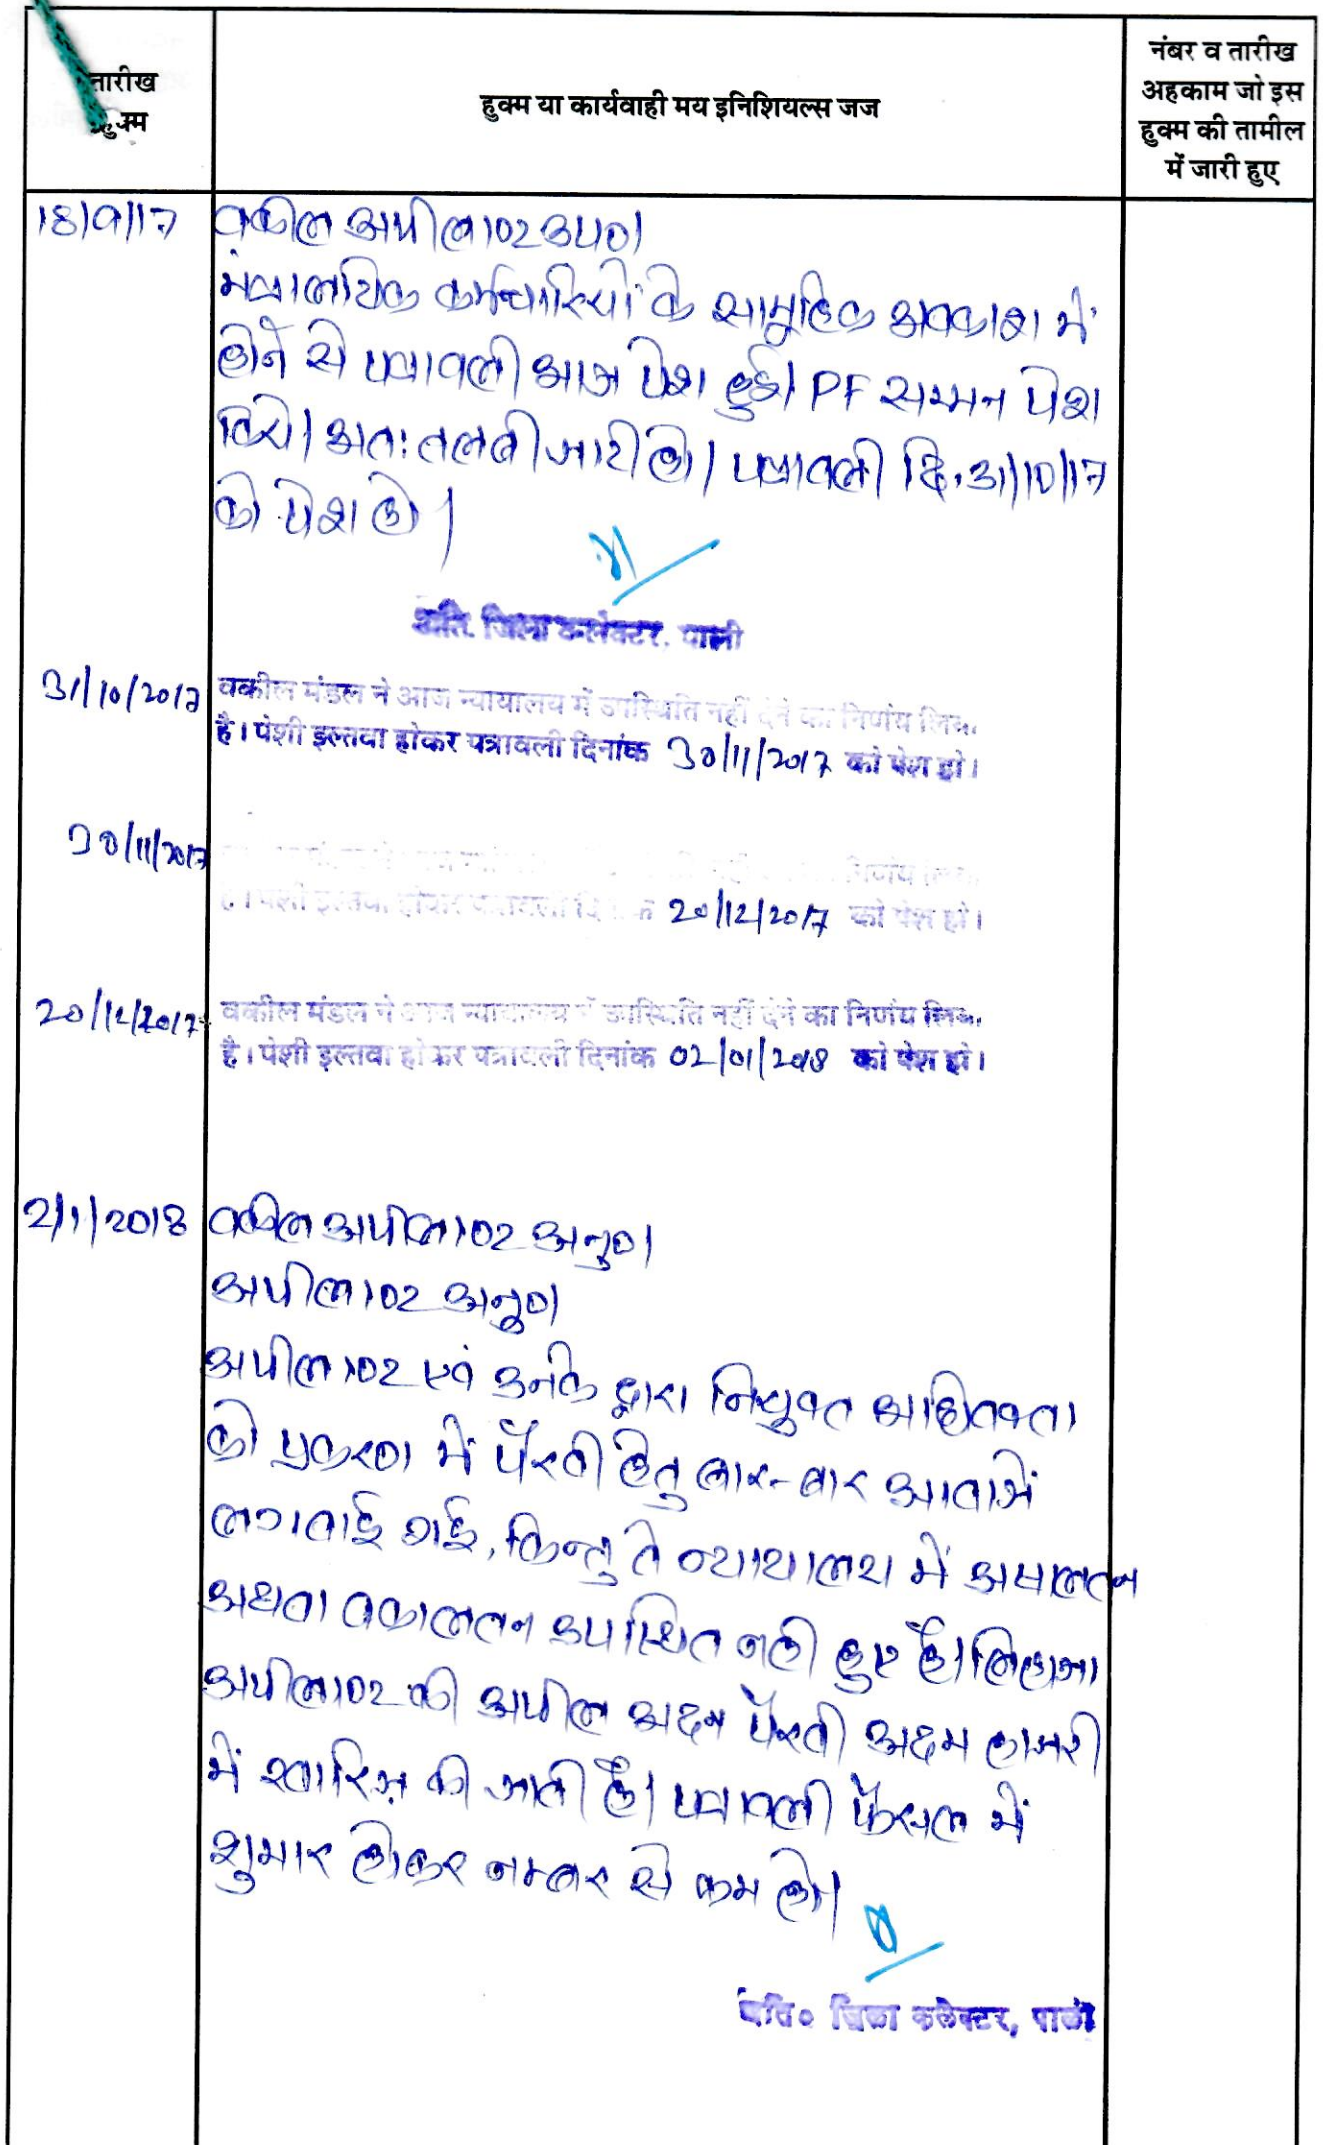 तारीख
हुक्म
हुक्म या कार्यवाही मय इनिशियल्स जज
नंबर व तारीख
अहकाम जो इस
हुक्म की तामील
में जारी हुए
18/9/17
वकील अपीलाण्ट उप०।
मंत्रालयिक कर्मचारियों के सामूहिक अवकाश में
होने से पत्रावली आज पेश हुई। PF सम्मन पेश
किये। अतः तलबी जारी हो। पत्रावली दि. 31/10/17
को पेश हो।
अति. जिला कलेक्टर, पाली
31/10/2017
वकील मंडल ने आज न्यायालय में उपस्थिति नहीं देने का निर्णय लिया
है। पेशी इल्तवा होकर पत्रावली दिनांक 30/11/2017 को पेश हो।
30/11/2017
नहीं निर्णय
है। पेशी इल्तवा होकर पत्रावली 20/12/2017 को पेश हो।
20/12/2017
वकील मंडल ने आज न्यायालय में उपस्थिति नहीं देने का निर्णय लिया
है। पेशी इल्तवा होकर पत्रावली दिनांक 02/01/2018 को पेश हो।
2/1/2018
वकील अपीलाण्ट अनु०।
अपीलाण्ट अनु०।
अपीलाण्ट एवं उनके द्वारा नियुक्त अधिवक्ता
को प्रकरण में पैरवी हेतु बार-बार आवाजें
लगवाई गई, किन्तु वे न्यायालय में असालतन
अथवा वकालतन उपस्थित नही हुए है। लिहाजा
अपीलाण्ट की अपील अदम पैरवी अदम हाजरी
में खारिज़ की जाती है। पत्रावली फैसल में
शुमार होकर नम्बर से कम हो।
अति० जिला कलेक्टर, पाली